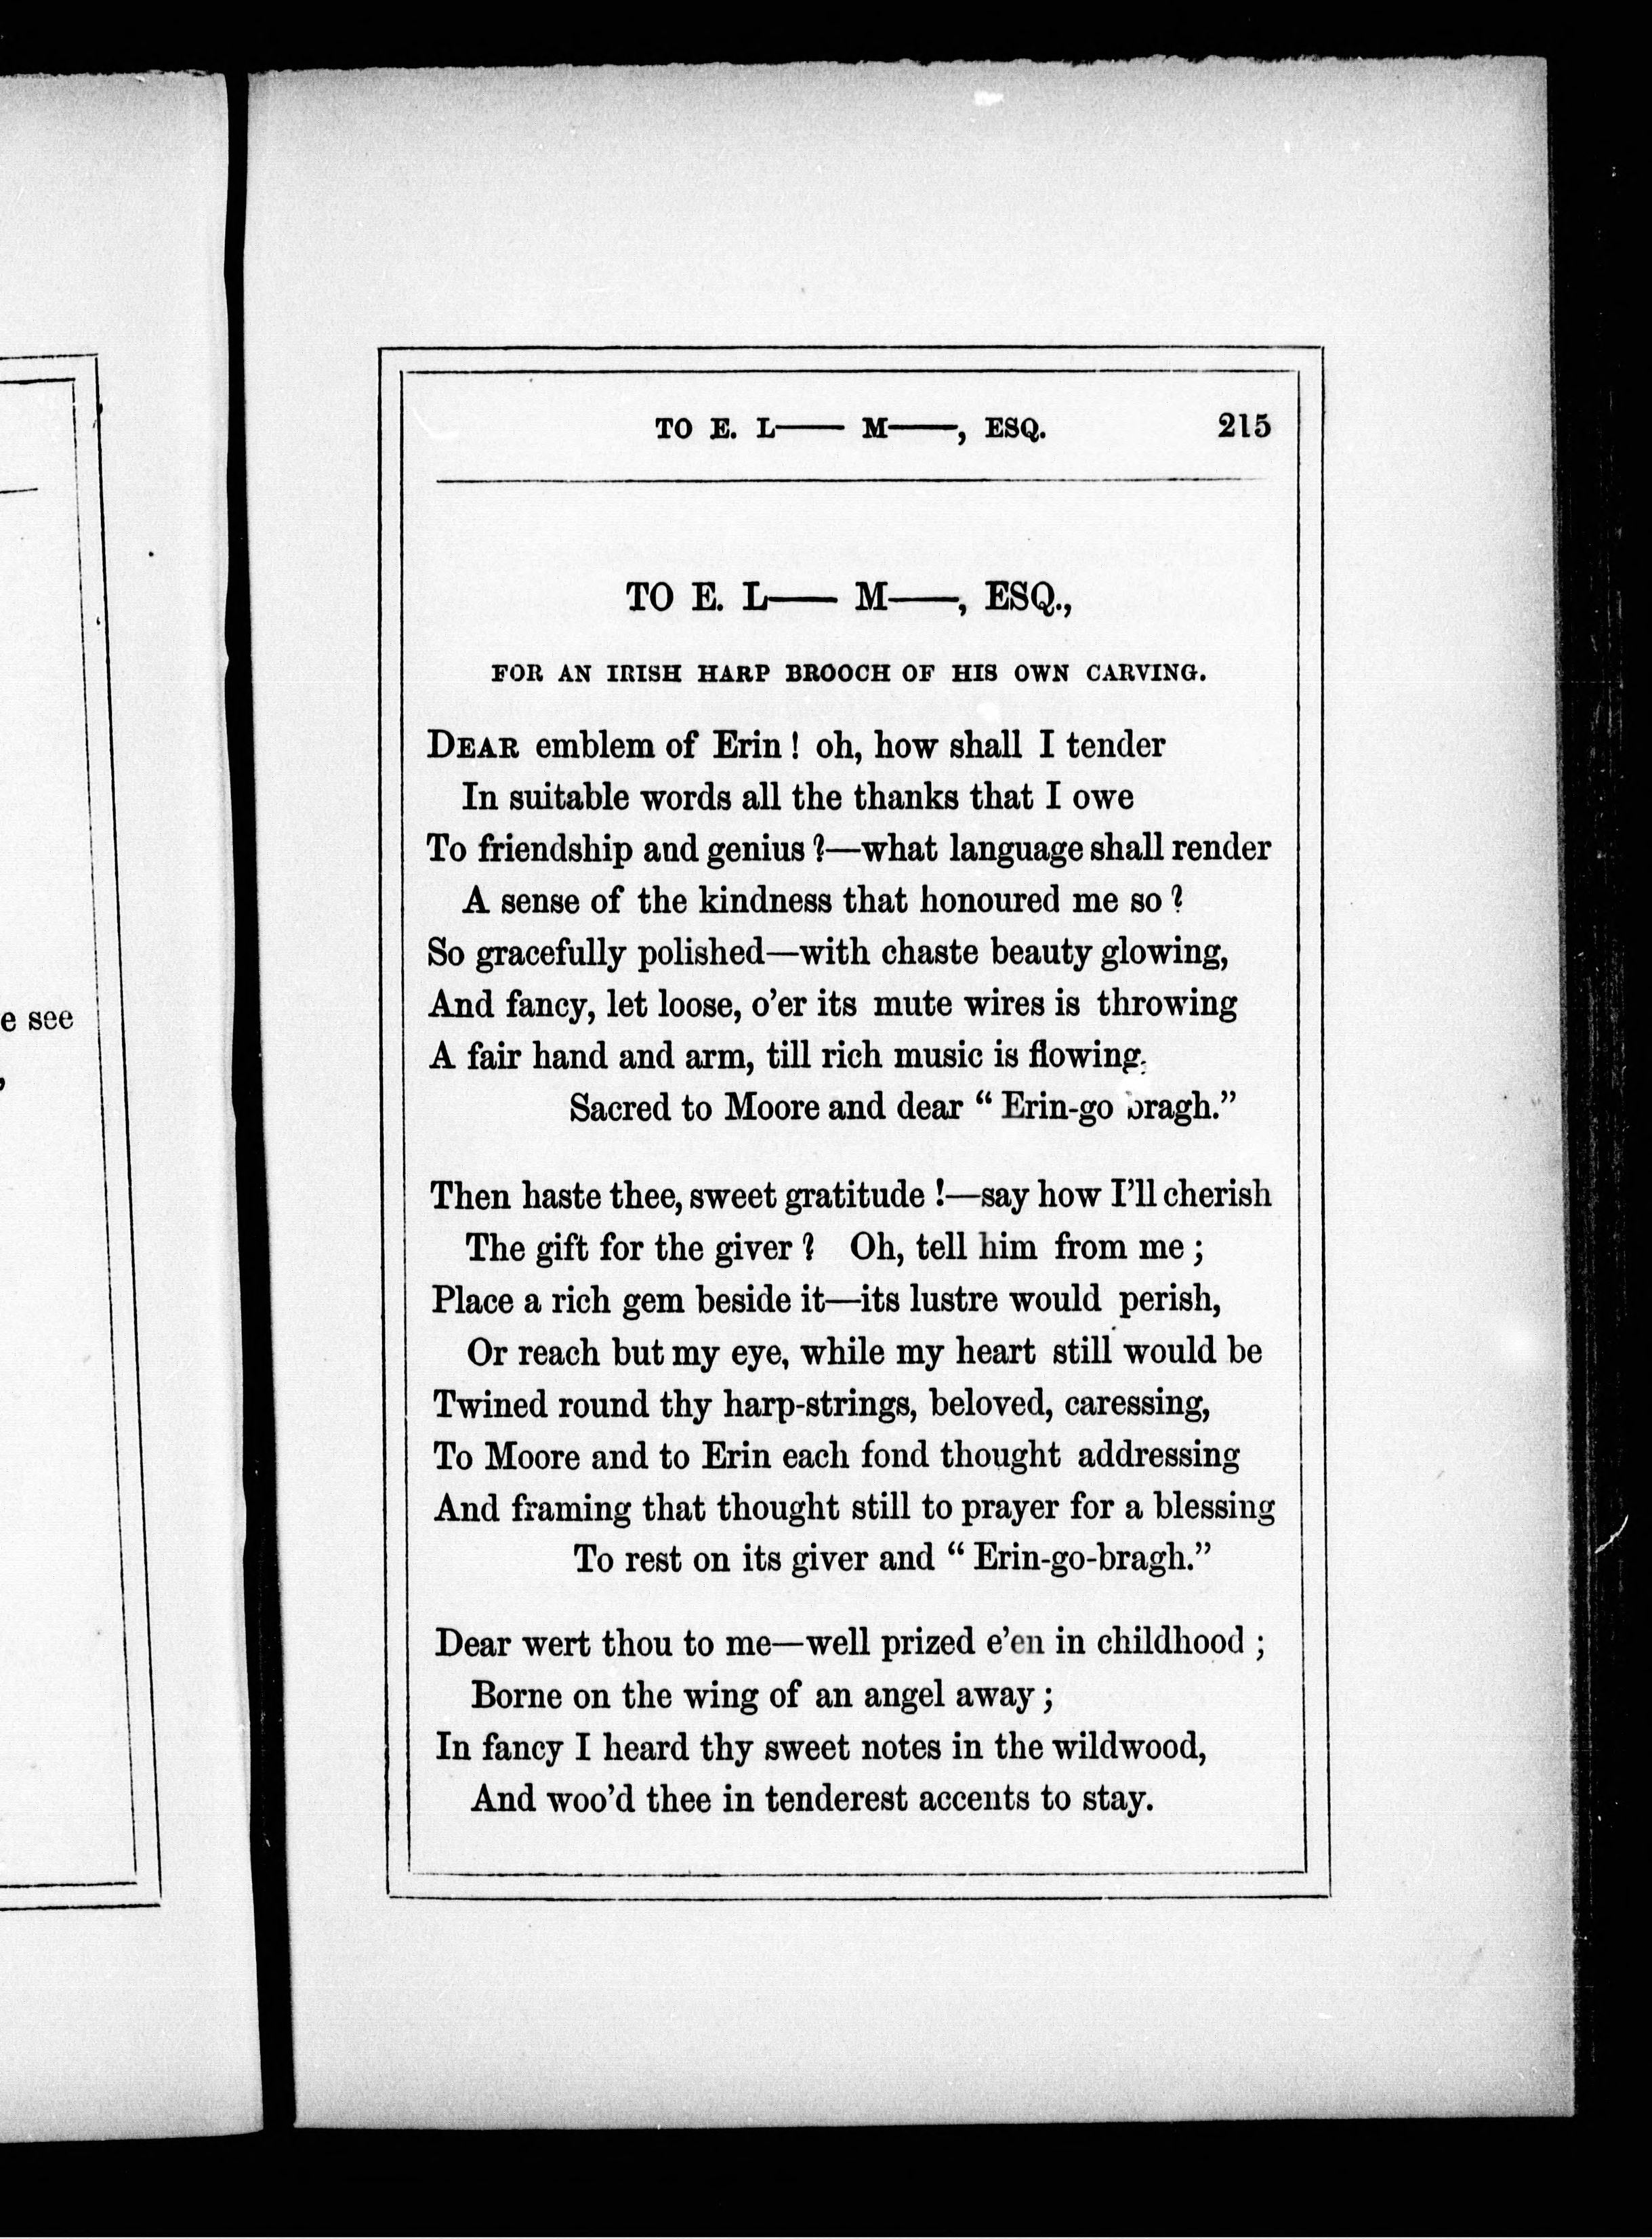 e see
,
TO E. L—— M——, ESQ. 215
TO E. L—— M——, ESQ.,
FOR AN IRISH HARP BROOCH OF HIS OWN CARVING.
DEAR emblem of Erin! oh, how shall I tender
In suitable words all the thanks that I owe
To friendship and genius?—what language shall render
A sense of the kindness that honoured me so?
So gracefully polished—with chaste beauty glowing,
And fancy, let loose, o'er its mute wires is throwing
A fair hand and arm, till rich music is flowing,
Sacred to Moore and dear "Erin-go bragh."
Then haste thee, sweet gratitude!—say how I'll cherish
The gift for the giver? Oh, tell him from me;
Place a rich gem beside it—its lustre would perish,
Or reach but my eye, while my heart still would be
Twined round thy harp-strings, beloved, caressing,
To Moore and to Erin each fond thought addressing
And framing that thought still to prayer for a blessing
To rest on its giver and "Erin-go-bragh."
Dear wert thou to me—well prized e'en in childhood;
Borne on the wing of an angel away;
In fancy I heard thy sweet notes in the wildwood,
And woo'd thee in tenderest accents to stay.